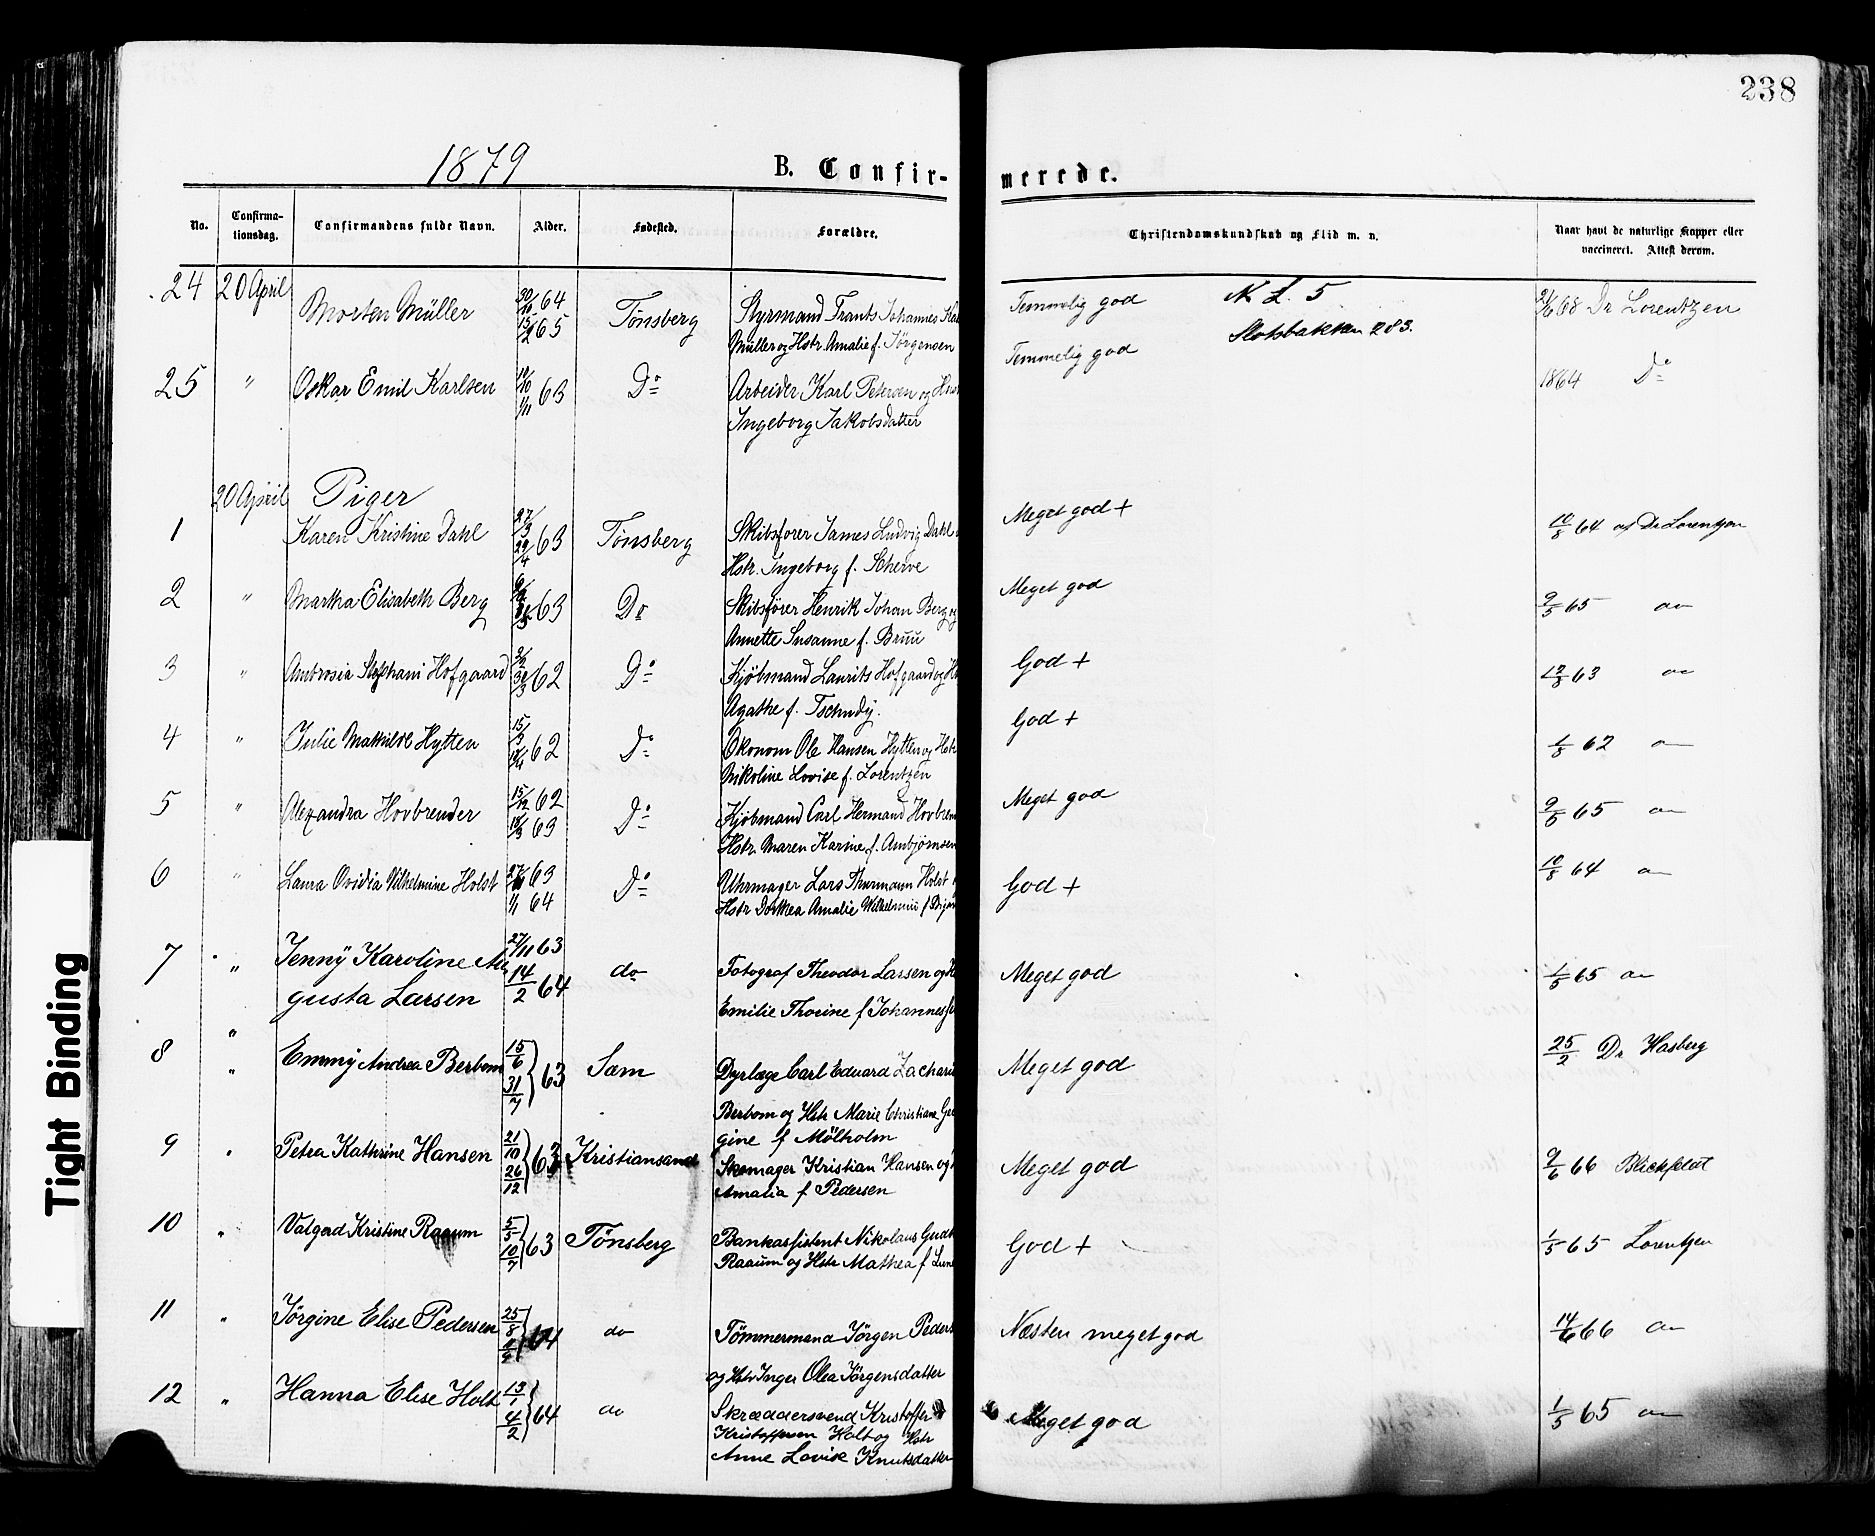 238
1879
B. Confir-
merede.
No.
Confirma-
tionsdag.
Confirmandens fulde Navn.
Alder.
Fødested.
Forældre.
Christendomskundskab og Flid m. v.
Naar havt de naturlige Kopper eller
vaccineret. Attest derom.
24 20 April Morten Müller 64 65 Tønsberg Styrmand Frants Johannes
Müller og Hstr. Amalie f. Jørgensen
Temmelig god
N. L. 5
Slotsbakken 283.
68 Dr Lorentzen
25 " Oskar Emil Karlsen 63 Do Arbeider Karl Petersen og
Ingeborg Jakobsdatter
Temmelig god
1864 Do
20 April Piger
1 Karen Kristine Dahl 27/3 29/4 63 Tønsberg Skibsfører James Ludvig Dahl
Hstr. Ingeborg f. Scherve
Meget god +
10/8 64 af Dr Lorentzen
2 " Martha Elisabeth Berg 63 Do Skibsfører Henrik Johan Berg og
Annette Susanne f. Bruu
Meget god
9/5 65 an
3 " Ambrosia Stephani Hofgaard 62 Do Kjøbmand Laurits Hofgaard og
Agathe f. Tschudy.
God +
63 an
4 " Julie Mathilde Hytten 15/3 62 Do Økonom Ole Hansen Hytten og Hstr
Nikoline Lovise f. Lorentzen
God +
62 an
5 " Alexandra Hovbrender 15/12 62 63 Do Kjøbmand Carl Hermand Hovbren
Hstr. Maren Karine f. Anbjørnsen
Meget god
65 an
6 " Laura Ovidia Vilhelmine Holst 63 1/1 64 Do Uhrmager Lars Thurmann Holst
Hstr Dorthea Amalie Wilhelmine f
God +
10/8 64 an
7 " Jenny Karoline Au 27/11 63 14/2 64 do Fotograf Theodor Larsen og
gusta Larsen Emilie Thorine f Johannes
Meget god
1/5 65 an
8 " Emmy Andrea Berbom 15/6 31/7 63 Sæm Dyrlæge Carl Eduard Zachari
Berbom og Hstr Marie Christiane
gine f Mölholm
Meget god
25/2 Dr Hasberg
9 " Petra Kathrine Hansen 21/10 26/12 63 Kristiansand Skomager Kristian Hansen og
Amalia f Pedersen
Meget god
9/6 66 Blickfeldt
10 " Valgerd Kristine Raaum 5/5 10/7 63 Tønsberg Bankassistent Nikolaus
Raaum og Hstr Mathea f
God +
1/5 65 Lorentzen
11 " Jørgine Elise Pedersen 25/8 64 do Tömmermand Jörgen Peders
og Hstr Inger Olea Jörgensdatter
Næsten meget god
14/6 66 an
12 " Hanna Elise Holt 13/1 4/2 64 do Skræddersvend Kristoffer
Kristoffersen Holt og Hstr
Anne Lovise Knutsdatter
Meget god
1/5 65 an
Tight Binding